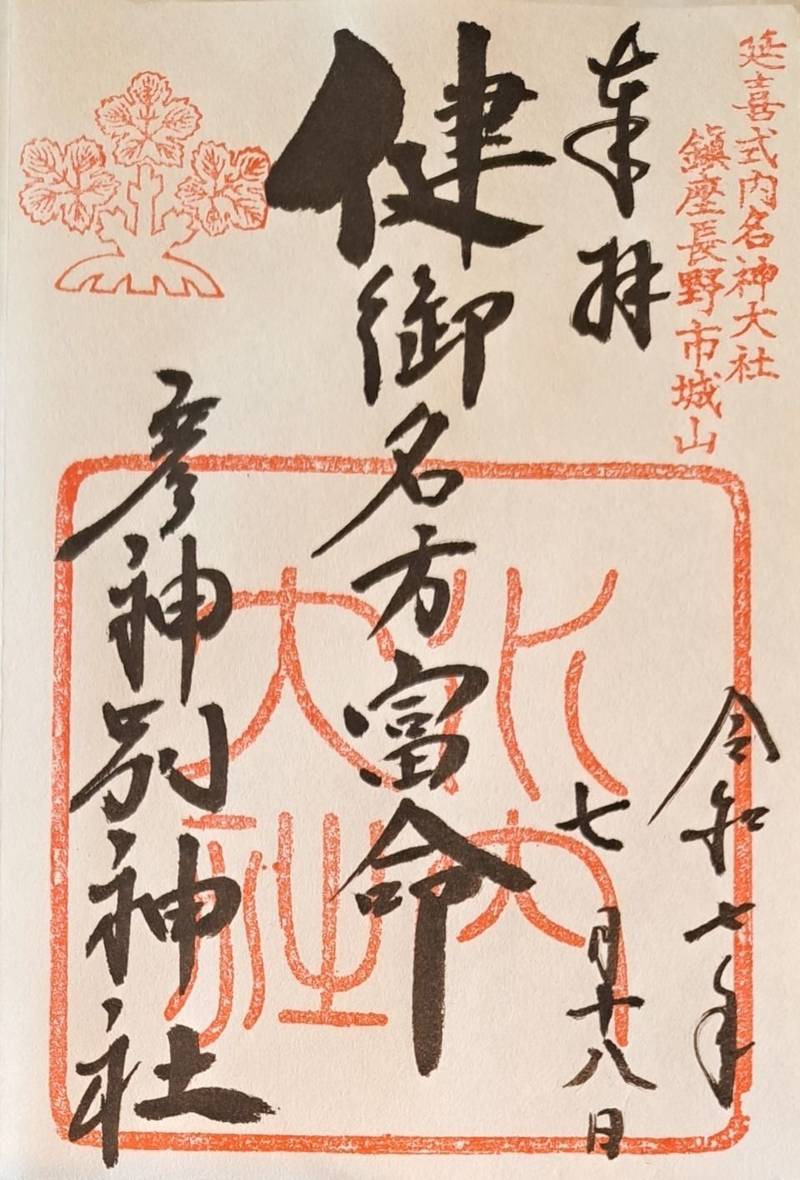 延喜式内名神大社
鎮座長野市城山
奉拝
令和七年
七月十八日
健御名方富命
彦神別神社
水内
大社